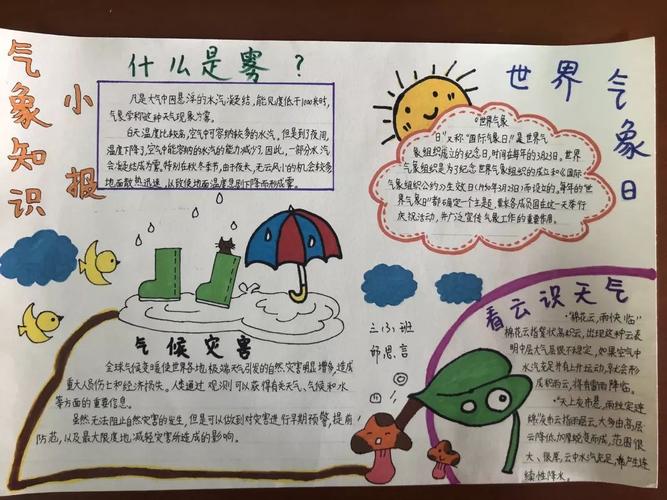 气象知识
小报
什么是雾?
凡是大气中因悬浮的水汽凝结,能见度低于1000米时,
气象学称这种天气现象为雾。
白天温度比较高,空气中可容纳较多的水汽。但是到了夜间,
温度下降了,空气中能容纳的水汽的能力减少了,因此,一部分水汽
会凝结成为雾。特别在秋冬季节,由于夜长,无云风小的机会较多
地面散热迅速,以致使地面温度急剧下降而形成雾。
世界气象日
“世界气象
日”又称“国际气象日”是世界气
象组织成立的纪念日,时间在每年的3月23日。世界
气象组织是为了纪念世界气象组织的成立和《国际
气象组织公约》生效日(1950年3月23日)而设的。每年的“世
界气象日”都确定一个主题,要求各成员国在这一天举行
庆祝活动,并广泛宣传气象工作的重要作用。
气候灾害
全球气候变暖使世界各地,极端天气引发的自然灾害明显增多,造成
重大人员伤亡和经济损失。人类通过观测可以获得有关天气、气候和水
等方面的重要信息。
虽然无法阻止自然灾害的发生,但是可以做到对灾害进行早期预警,提前
防范,以及最大限度地减轻灾害所造成的影响。
三(3)班
思言
看云识天气
“棉花云,雨快临”
棉花云指絮状高积云,出现这种云表
明中层大气层很不稳定,如果空气中
水汽充足并有上升运动,就会形
成积雨云,将有雷雨降临。
“天上灰布悬,雨丝定连
绵”灰布云指雨层云,大多由高层
云降低加厚蜕变而成,范围很
大、很厚,云中水汽充足,常产生连
续性降水。